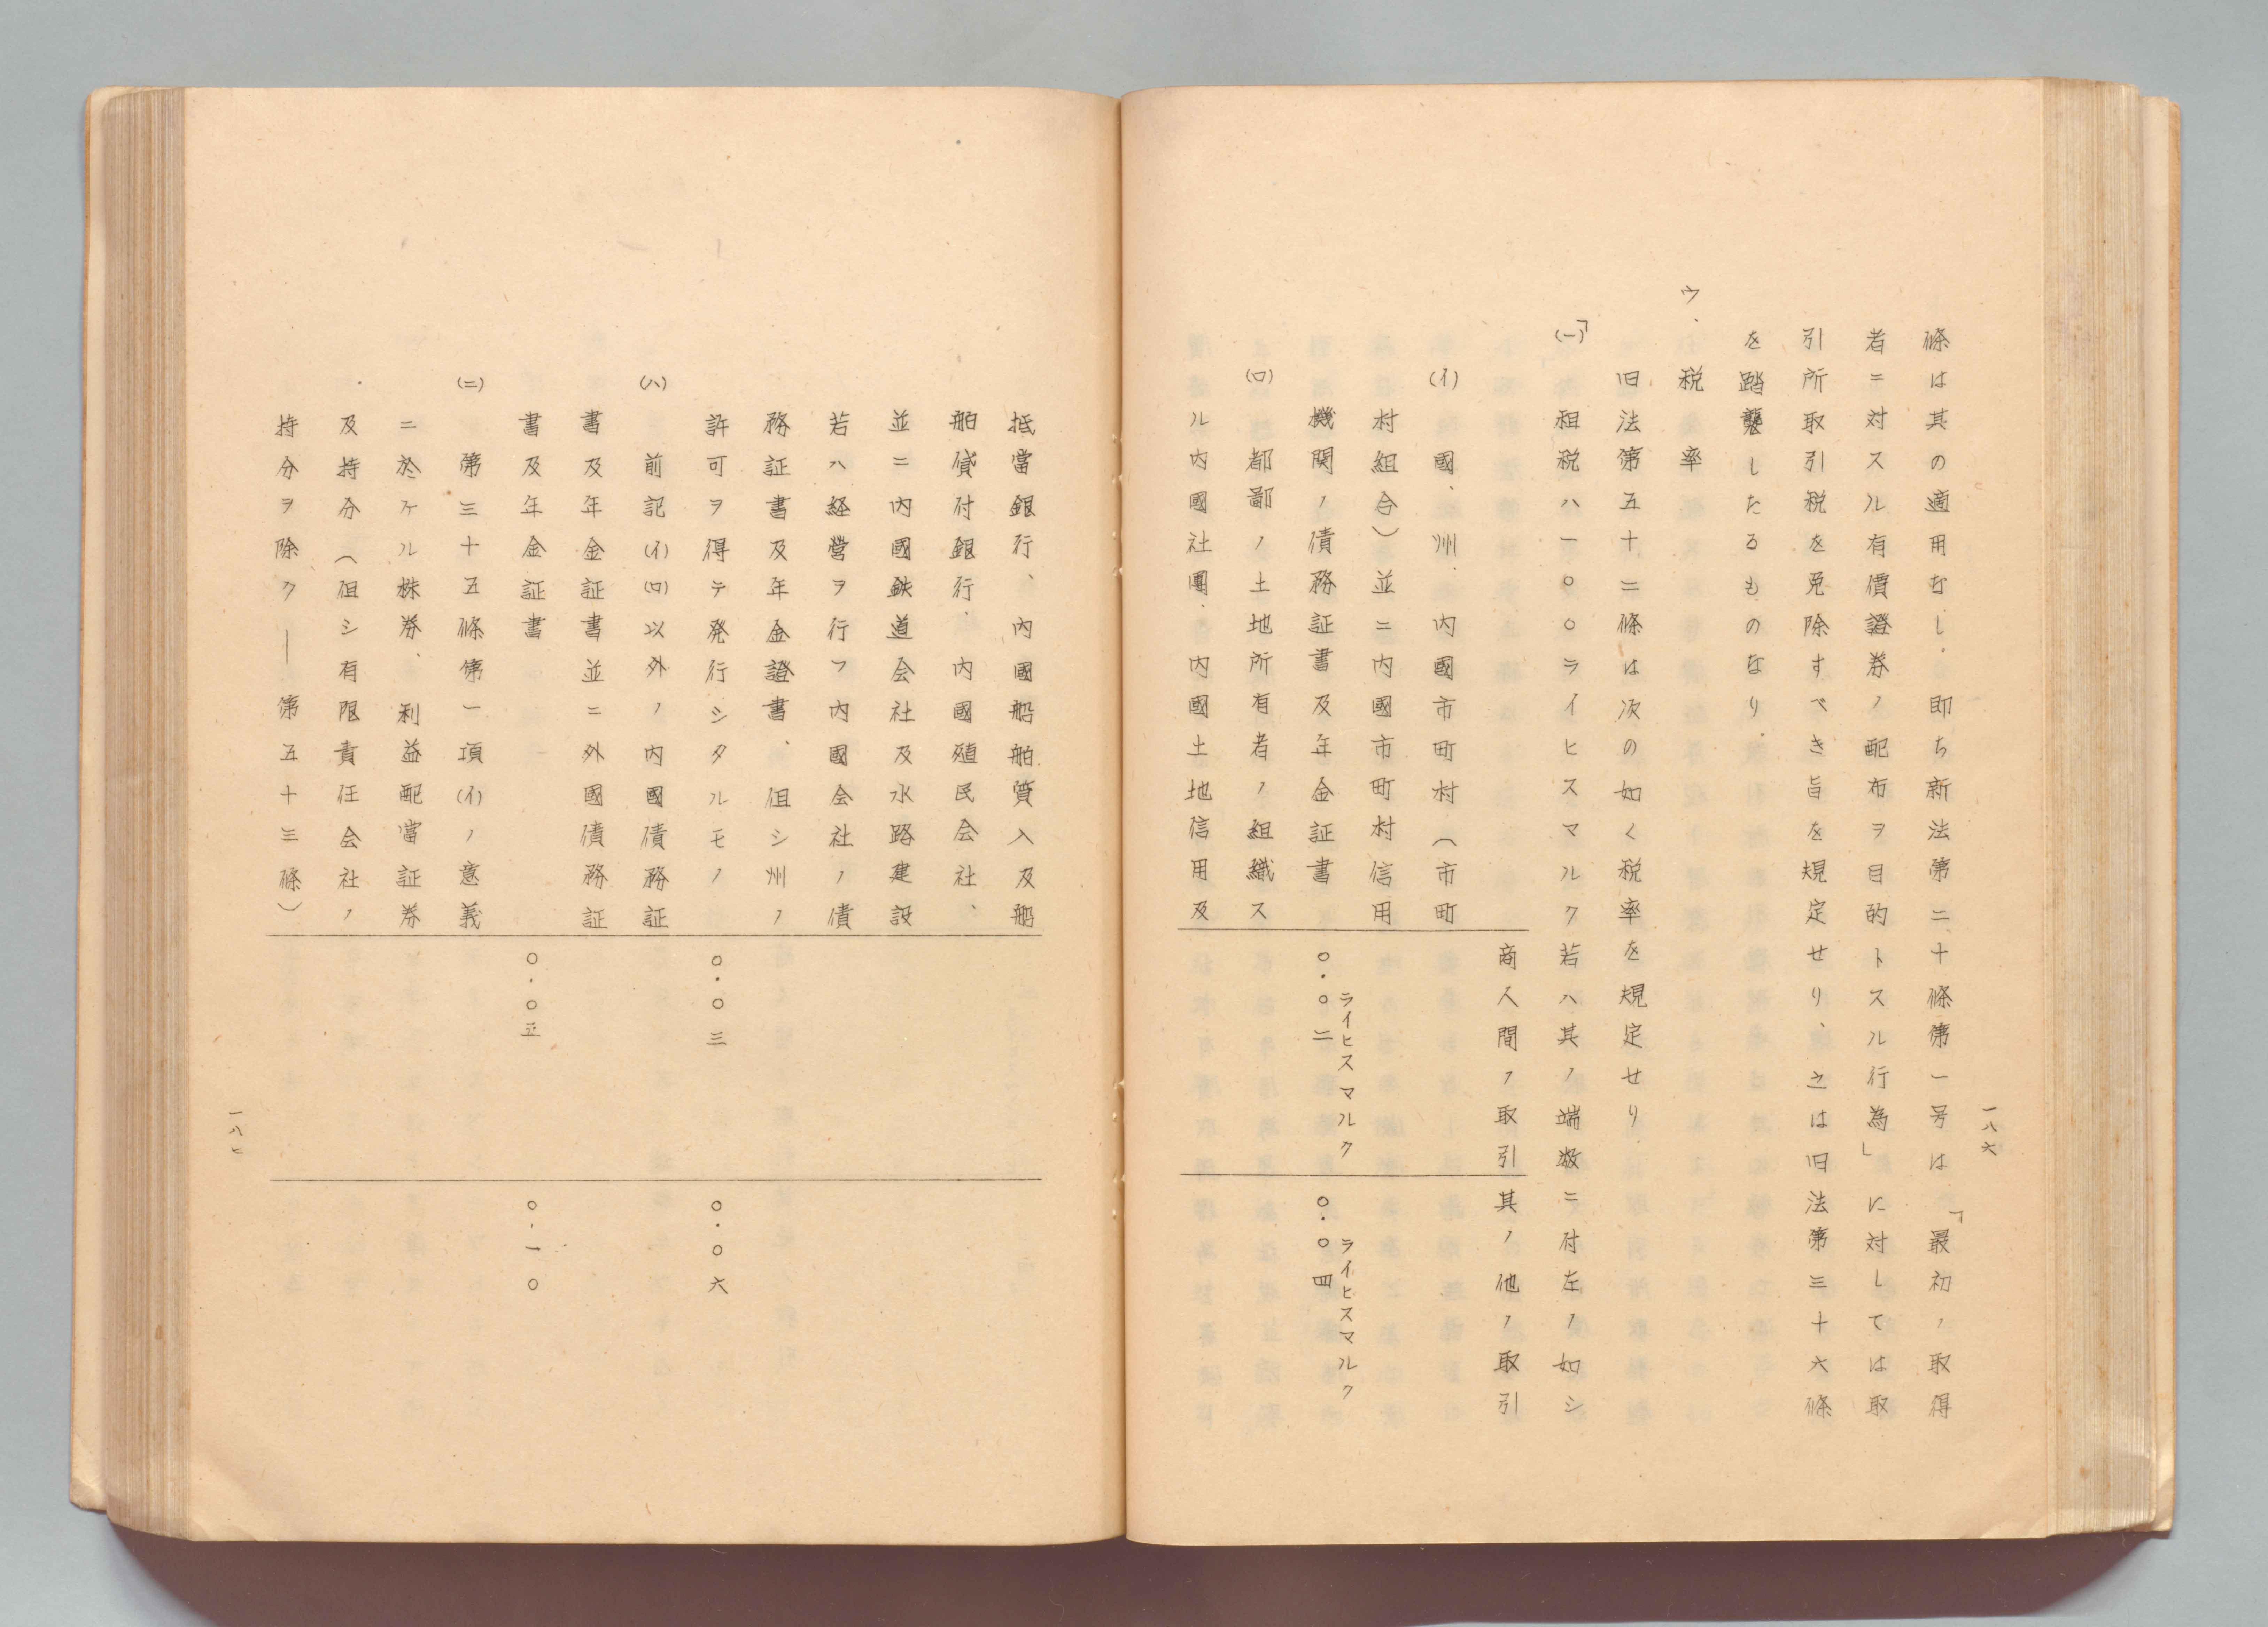 一八六
條は其の適用なし．即ち新法第二十條第一号は「最初ノ取得
者ニ対スル有價證券ノ配布ヲ目的トスル行為」に対しては取
引所取引税を免除すべき旨を規定せり、之は旧法第三十六條
を踏襲したるものなり．
ウ、税率
旧法第五十二條は次の如く税率を規定せり．
「(一)租税ハ一〇〇〇ライヒスマルク若ハ其ノ端数ニ付左ノ如シ
商人間ノ取引 其ノ他ノ取引
(イ)國、州、内國市町村（市町
村組合）並ニ内國市町村信用
ライヒスマルク ライヒスマルク
機関ノ債務証書及年金証書 〇.〇二 〇.〇四
(ロ)都鄙ノ土地所有者ノ組織ス
ル内國社團、内國土地信用及
抵當銀行、内國船舶質入及船
舶貸付銀行、内國殖民会社、
並ニ内國鉄道会社及水路建設
若ハ経営ヲ行フ内國会社ノ債
務証書及年金證書、但シ州ノ
許可ヲ得テ発行シタルモノ 〇.〇三 〇.〇六
(ハ)前記(イ)(ロ)以外ノ内國債務証
書及年金証書並ニ外國債務証
書及年金証書 〇.〇五 〇.一〇
(ニ)第三十五條第一項(イ)ノ意義
ニ於ケル株券、利益配當証券
及持分（但シ有限責任会社ノ
持分ヲ除ク―第五十三條）
一八七